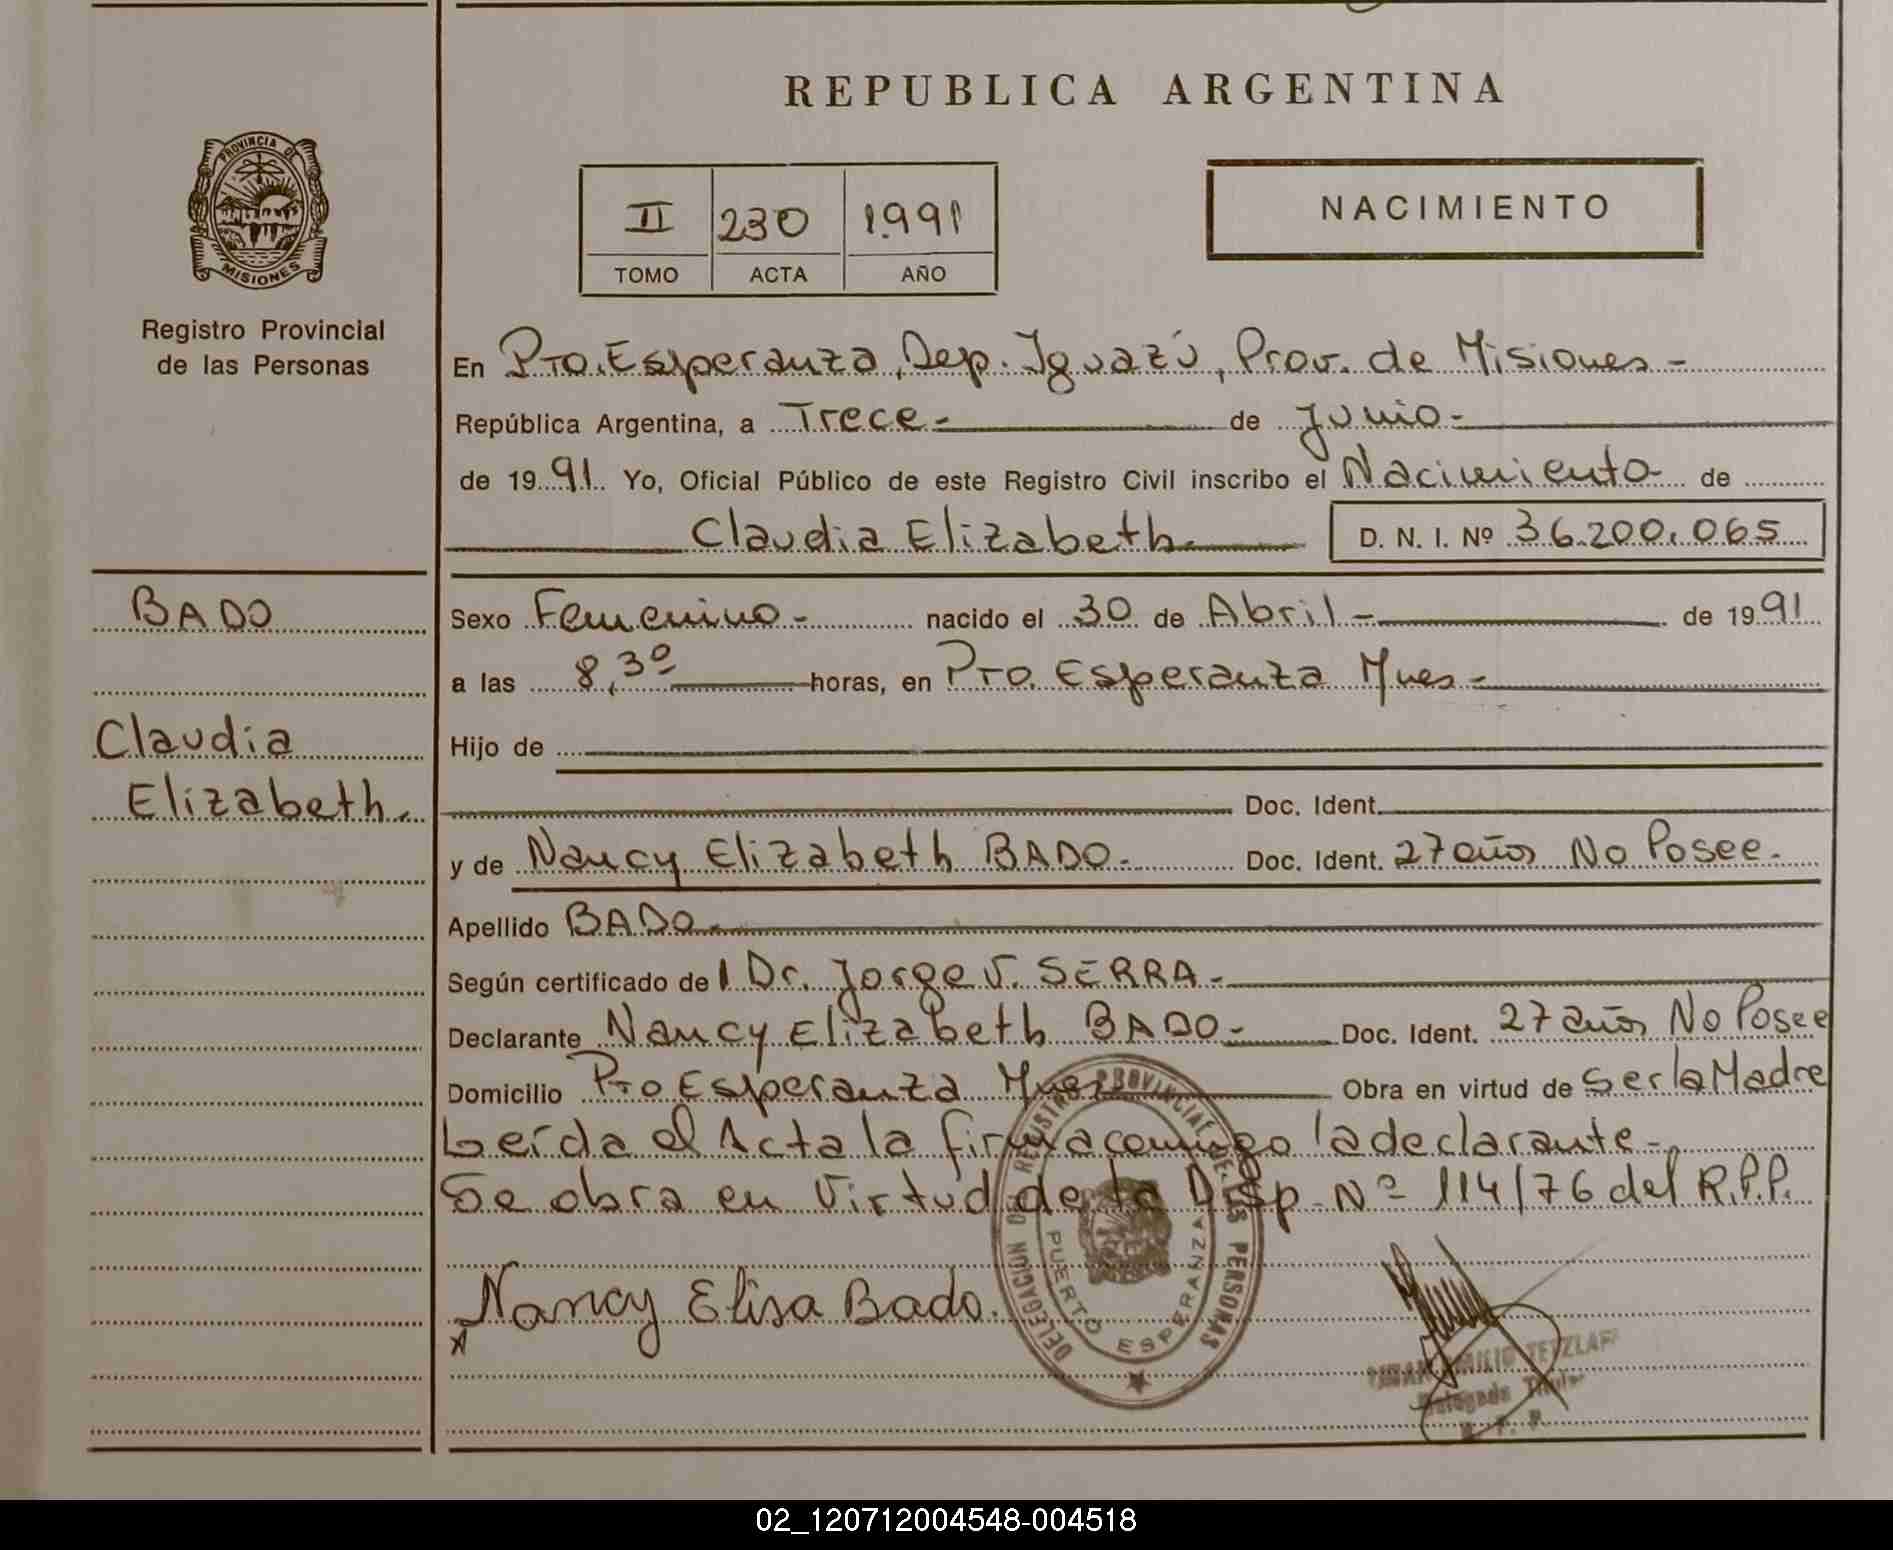 REPUBLICA ARGENTINA
PROVINCIA DE
MISIONES
Registro Provincial
de las Personas
II 230 1.991
TOMO ACTA AÑO
NACIMIENTO
En Pto. Esperanza, Dep. Iguazú, Prov. de Misiones -
República Argentina, a Trece - de Junio -
de 1991. Yo, Oficial Público de este Registro Civil inscribo el Nacimiento de
Claudia Elizabeth. D. N. I. Nº 36.200.065
BADO
Claudia
Elizabeth.
Sexo Femenino - nacido el 30 de Abril - de 1991
a las 8,30 horas, en Pto. Esperanza Mnes -
Hijo de
Doc. Ident.
y de Nancy Elizabeth BADO - Doc. Ident. 27 años No Posee.
Apellido BADO -
Según certificado de l Dr. Jorge V. SERRA -
Declarante Nancy Elizabeth BADO - Doc. Ident. 27 años No Posee
Domicilio Pto Esperanza Mnes Obra en virtud de Ser la Madre
Leída el Acta la firma conmigo la declarante -
Se obra en Virtud de la Disp. Nº 114/76 del R.P.P.
Nancy Elisa Bado.
DELEGACION DEL REGISTRO PROVINCIAL DE LAS PERSONAS
PUERTO ESPERANZA
EMILIO TETZLAFF
Delegado Titular
02_120712004548-004518